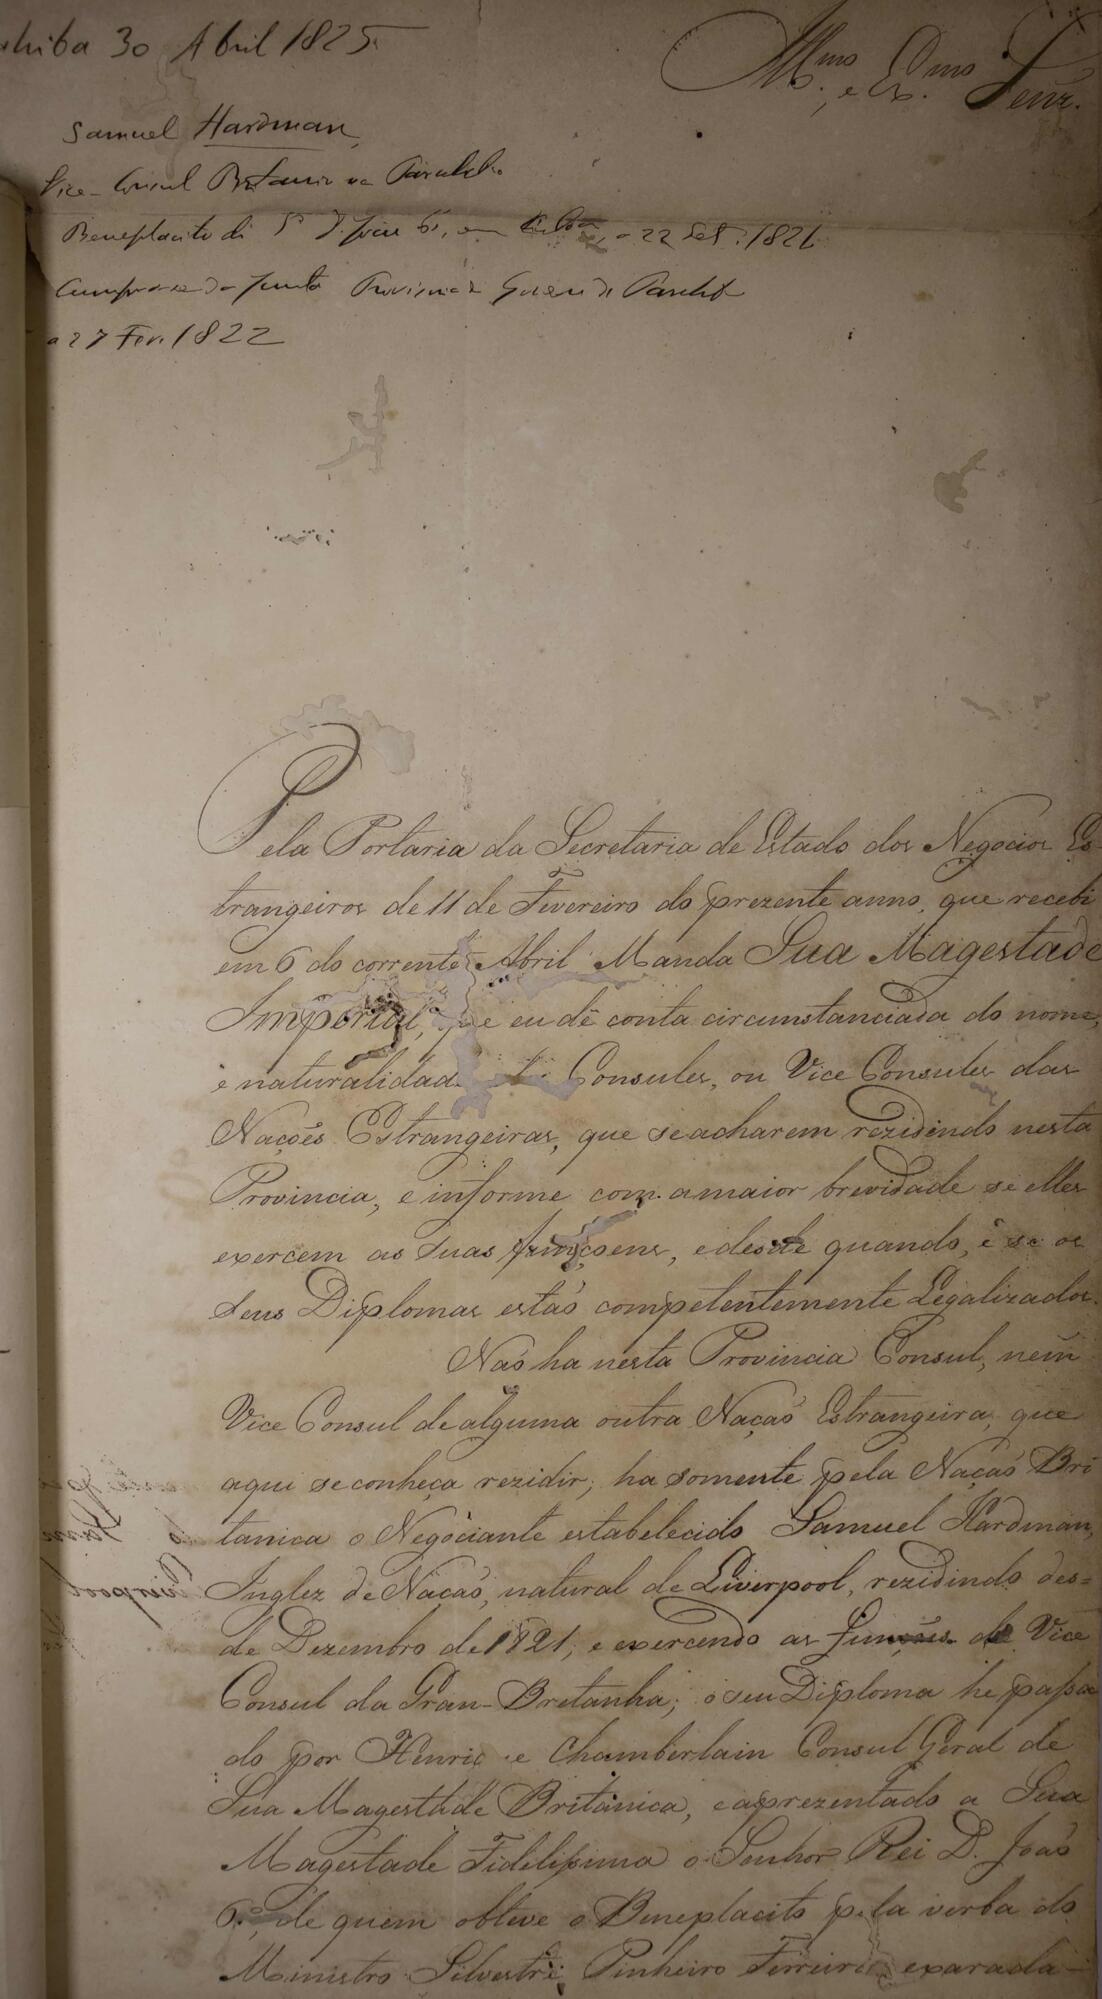 ahiba 30 Abril 1825
Illmo. e Exmo. Senr.
Samuel Hardman
Vice-Consul Britanio na Parahiba
Beneplacito di S. D. João 6º, em Lisboa, a 22 Set. 1821
Cumpra-se da Junta Provisoria Governo de Parahiba
a 27 Fev. 1822
Pela Portaria da Secretaria de Estado dos Negocios Es-
trangeiros de 11 de Fevereiro do prezente anno, que recebi
em 6 do corrente Abril Manda Sua Magestade
Imperial, que eu dê conta circunstanciada do nome,
e naturalidade Consules, ou Vice Consules das
Nações Estrangeiras, que se acharem rezidindo nesta
Provincia, e informe com a maior brevidade se elles
exercem as suas funçoens, e desde quando, e se os
seus Diplomas estaõ competentemente Legalizados.
Naõ ha nesta Provincia Consul, nem
Vice Consul de alguma outra Naçaõ Estrangeira, que
aqui se conheça rezidir; ha somente pela Naçaõ Bri
tanica o Negociante estabelecido Samuel Hardman,
Inglez de Naçaõ, natural de Liverpool, rezidindo des=
de Dezembro de 1821, e exercendo as Funções de Vice
Consul da Gran-Bretanha; o seu Diploma he passa
do por Henrique Chamberlain Consul Geral de
Sua Magestade Britanica, e aprezentado a Sua
Magestade Fidelissima o Senhor Rei D. Joaõ
6º, de quem obteve o Beneplacito pela verba do
Ministro Silvestre Pinheiro Ferreira exarada